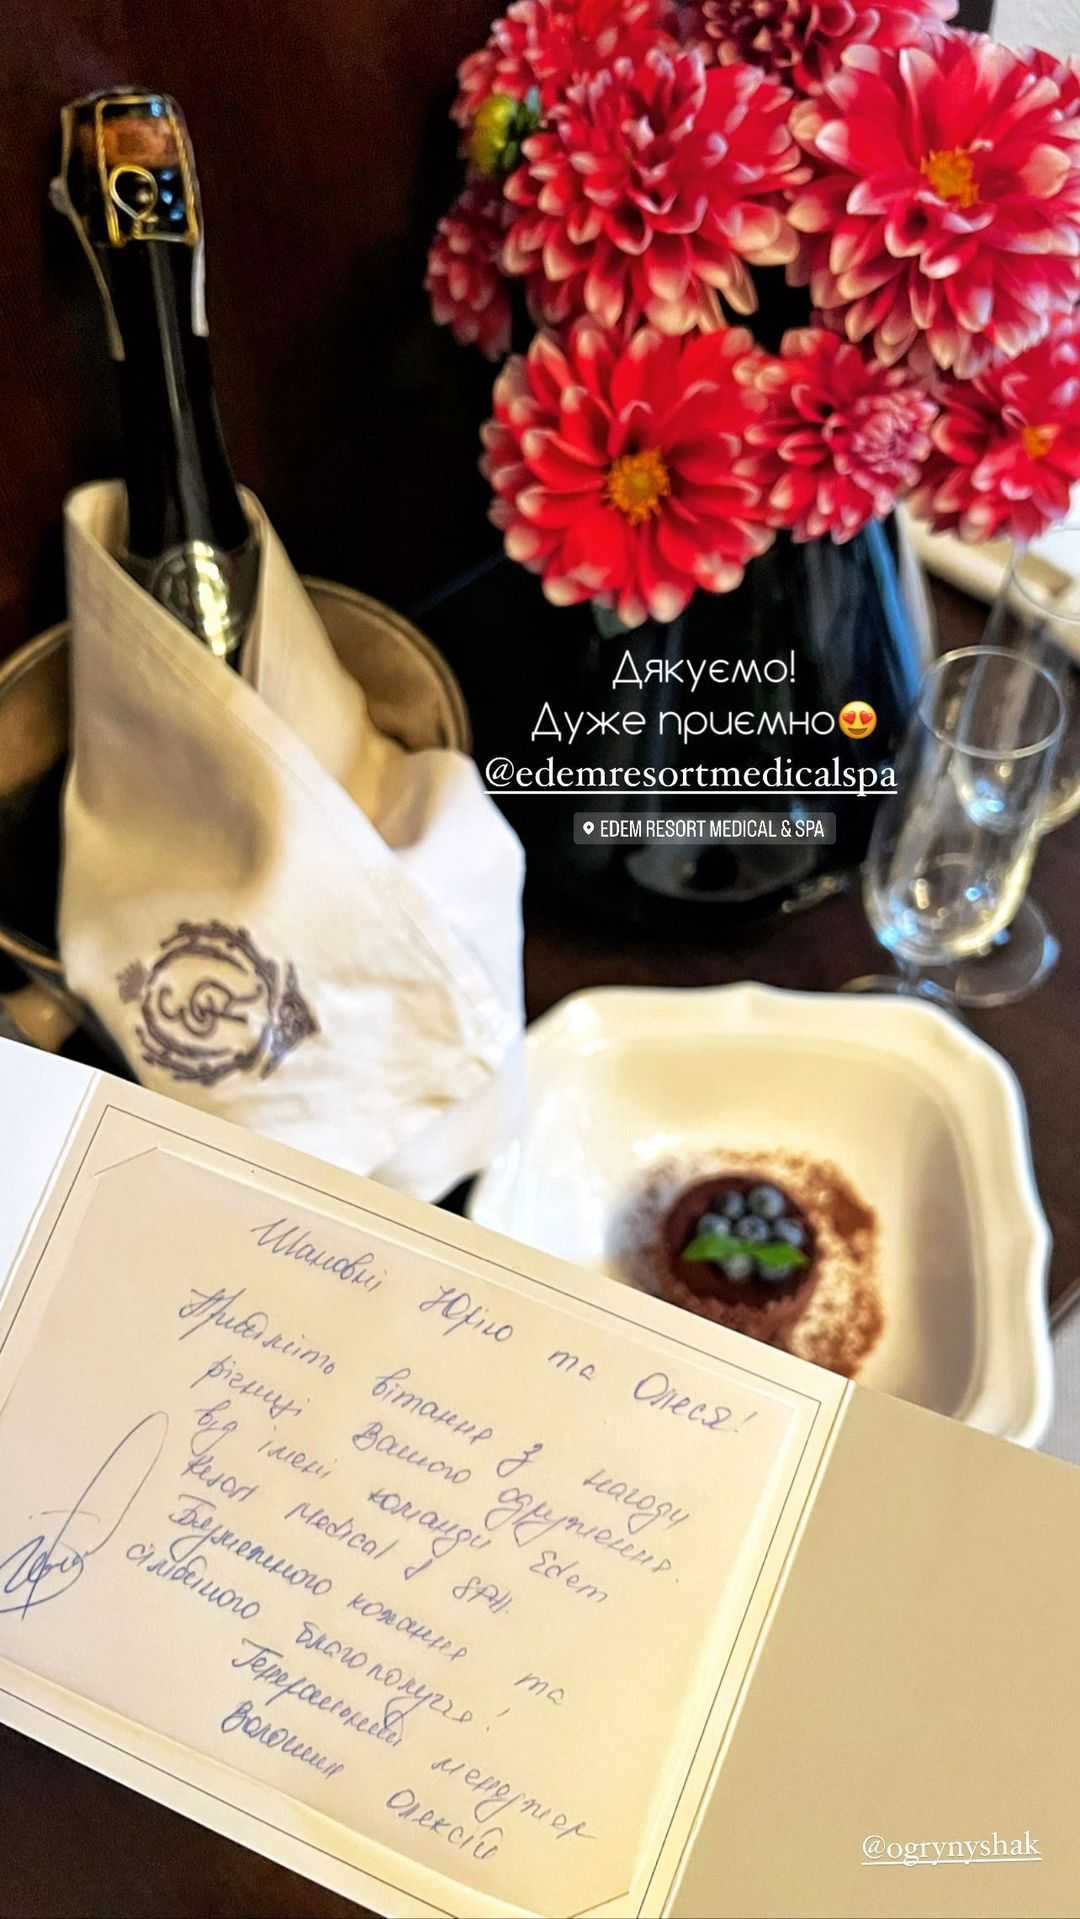 Дякуємо!
Дуже приємно😍
@edemresortmedicalspa
EDEM RESORT MEDICAL & SPA
E&R
Шановні Юрію та Олеся!
Прийміть вітання з нагоди
річниці Вашого одруження.
від імені команди Edem
Resort Medical & SPA.
Безмежного кохання та
сімейного благополуччя!
Генеральний менеджер
Волошин Олексій
@ogrynyshak